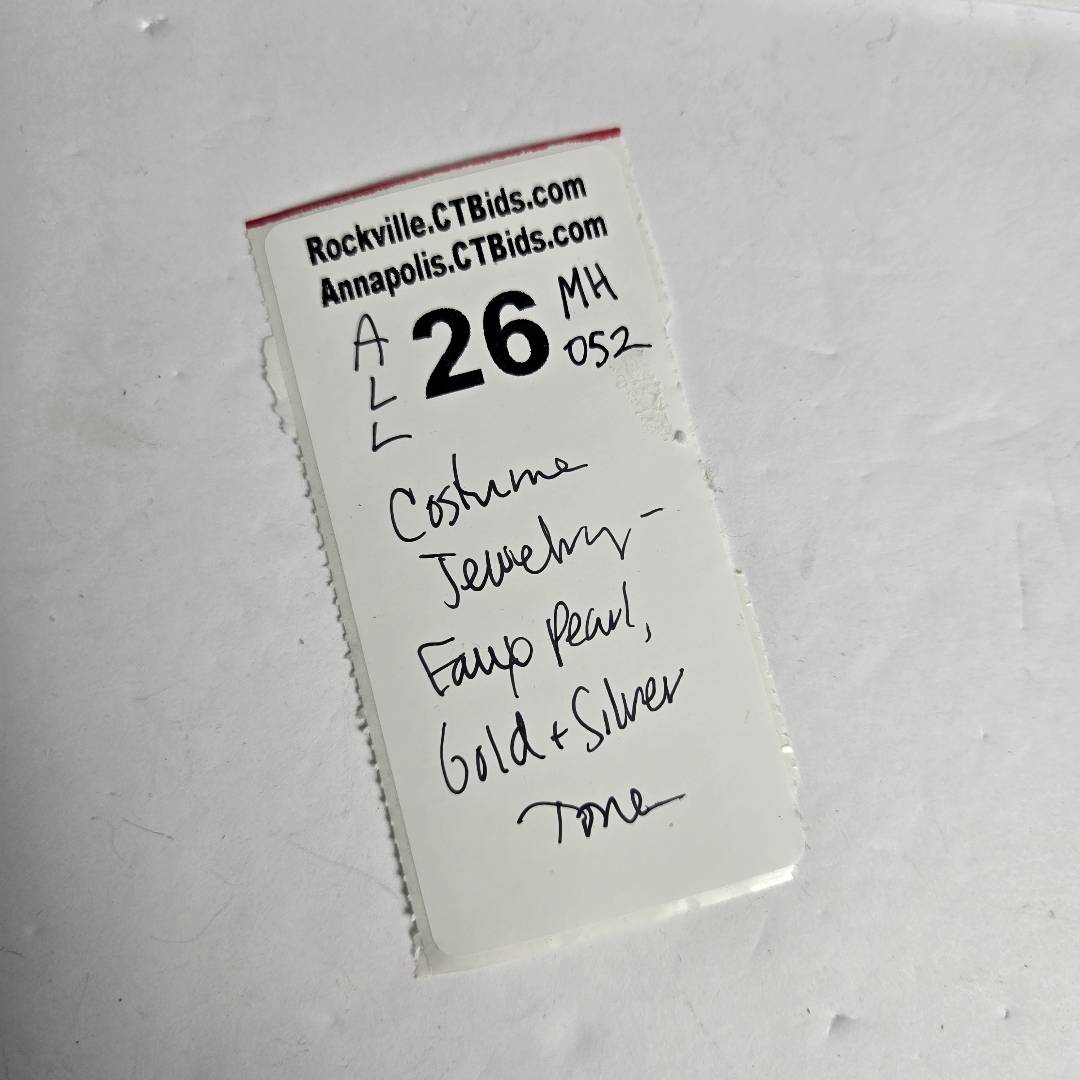 Rockville.CTBids.com
Annapolis.CTBids.com
ALL 26 MH
052
Costume
Jewelry -
Faux Pearl,
Gold + Silver
Tone